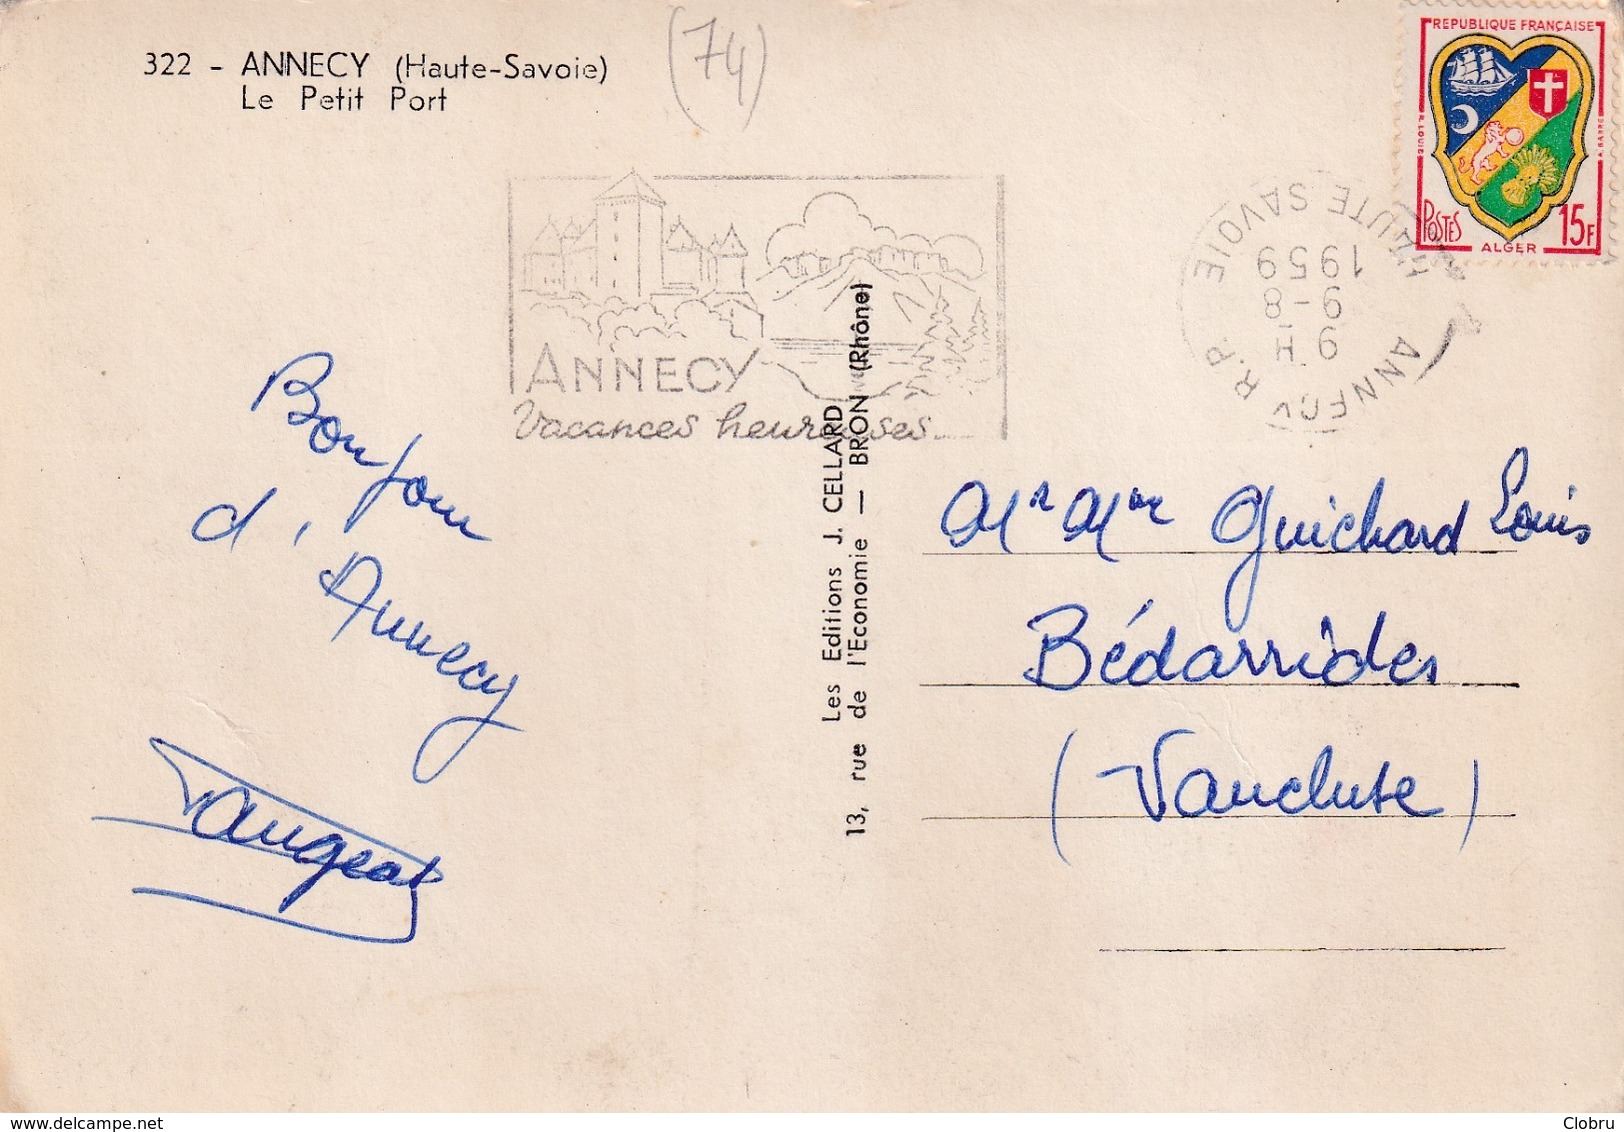 322 - ANNECY (Haute-Savoie)
Le Petit Port
(74)
REPUBLIQUE FRANÇAISE
POSTES
15F
ALGER
ANNECY R.P.
HAUTE SAVOIE
9 H
9-8
1959
ANNECY
Vacances heureuses
Bonjour
d'
Annecy
Les Editions J. CELLARD
13, rue de l'Economie — BRON (Rhône)
Mr Mme Guichard Louis
Bédarrides
(Vaucluse)
Clobru